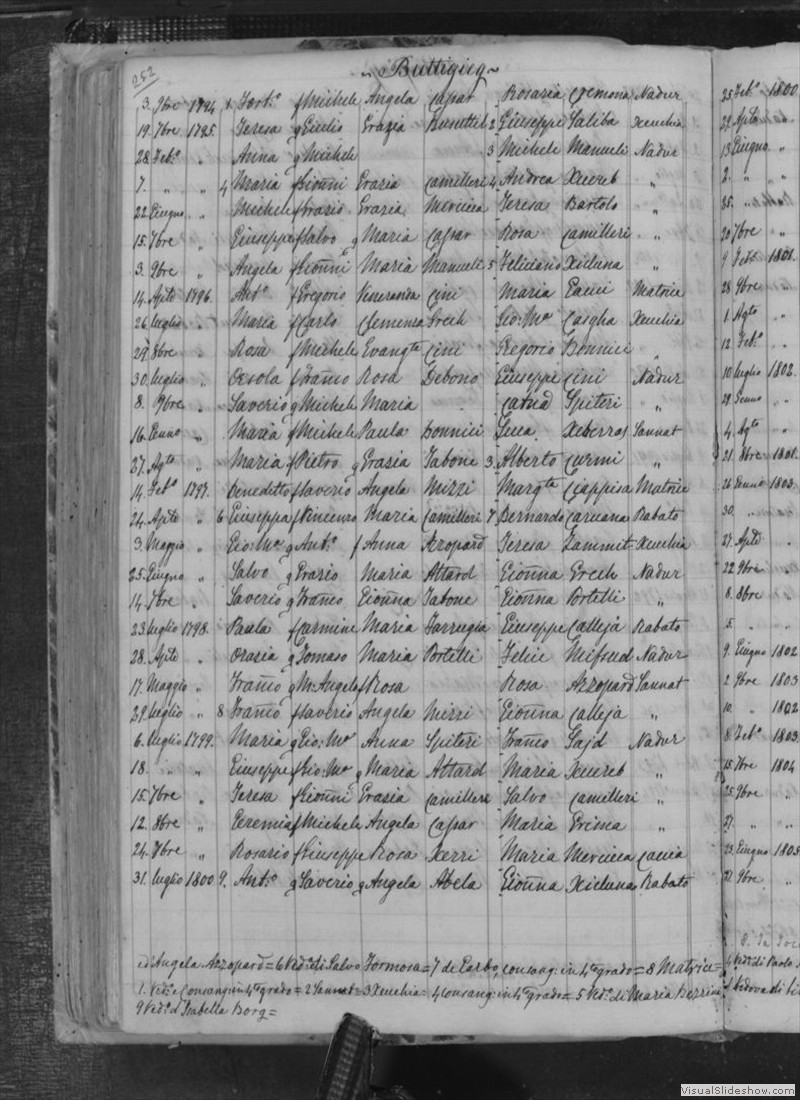 252
~ Buttigieg ~
3. 9bre 1794 1. Fort.º f Michele Angela Capar Rosaria Cremona Nadur
19. 7bre 1795. Teresa g Giulio Grazia 2 Giuseppe Saliba Xeuchia
28. Feb.º „ Anna g Michele 3 Michele Manueli Nadur
7. „ „ 4 Maria f Gioñni Grazia Camilleri 4 Andrea Xuereb „
22. Giugno „ Michele f Grazio Grazia Mercieca Teresa Bartolo „
15. 7bre „ Giuseppe f Salvo g Maria Capar Rosa Camilleri „
3. 9bre „ Angela f Gioñni Maria Manueli 5 Feliciano Xicluna „
14. Aple 1796. Ant.º f Gregorio Veneranda Cini Maria Matrice
26. luglio „ Maria f Carlo Clemenza Grech Gio: Mª Casgha Xeuchia
29. 8bre „ Rosa f Michele Evangta Cini Gregorio Bonnici „
30. luglio „ Orsola f Franco Rosa Debono Giuseppe Cini Nadur
8. 9bre „ Saverio g Michele Maria Catna Spiteri „
16. Genno „ Maria f Michele Paula Bonnici Luca Xeberras Sannat
27. Agto „ Maria f Pietro g Grasia Tabone 3. Alberto Curmi „
14. Feb.º 1797. Benedetto f Saverio Angela Mizzi Margta Ciappisa Matrice
24. Aple „ 6 Giuseppa f Vincenzo Maria Camilleri 7 Bernardo Caruana Rabato
3. Maggio „ Gio: Mª g Ant.º f Anna Azopard Teresa Zammit Xeuchia
25. Giugno „ Salvo g Grazio Maria Attard Gioñna Grech Nadur
14. 7bre „ Saverio g Franco Gioñna Tabone Gioñna Portelli „
23 luglio 1798. Paula f Carmine Maria Farrugia Giuseppe Calleja Rabato
28. Aple „ Grasia g Tomaso Maria Portelli Felice Mifsud Nadur
17. Maggio „ Franco g M. Angelo f Rosa Rosa Azzopard Sannat
29. luglio „ 8 Franco f Saverio Angela Mizzi Gioñna Calleja „
6. luglio 1799. Maria g Gio: Mª Anna Spiteri Franco Sajd Nadur
18. „ „ Giuseppe f Gio: Mª g Maria Attard Maria Xuereb „
15. 7bre „ Teresa f Gioñni Grasia Camilleri Salvo Camilleri „
12. 8bre „ Geremia f Michele Angela Capar Maria Grima „
24. 7bre „ Rosario f Giuseppe Rosa Xerri Maria Mercieca Caccia
31. luglio 1800. 9. Ant.º g Saverio g Angela Abela Gioñna Xicluna Rabato
d'Angela Azzopard = 6 Ved.ª di Salvo Formosa = 7 de Garbo, consang: in 4to grado = 8 Matrice =
1. Ved.º e Consang: in 4to grado = 2 Sannat = 3 Xeuchia = 4 Consang: in 4to grado = 5 Ved.º di Maria
9 Ved.º d'Isabella Borg =
25 Feb.º 1800
22. Aple „
13 Giugno „
2. „ „
25. „ „
20 7bre „
9. Feb.º 1801.
28 9bre „
1. Agto „
12 Feb.º „
10 luglio 1802.
29. Genno „
4. Agto „
21. 8bre 1801.
26 Genno 1803
30. „ „
27. Aple „
22 9bre „
8. 8bre „
5. „ „
9. Giugno 1802
2 9bre 1803
10. „ 1802
8 Feb.º 1803.
15. 7bre 1804
25. 9bre „
27. „ „
23. Giugno 1805
22. 9bre „
Ved.ª di Paolo
Vedova di
VisualSlideshow.com